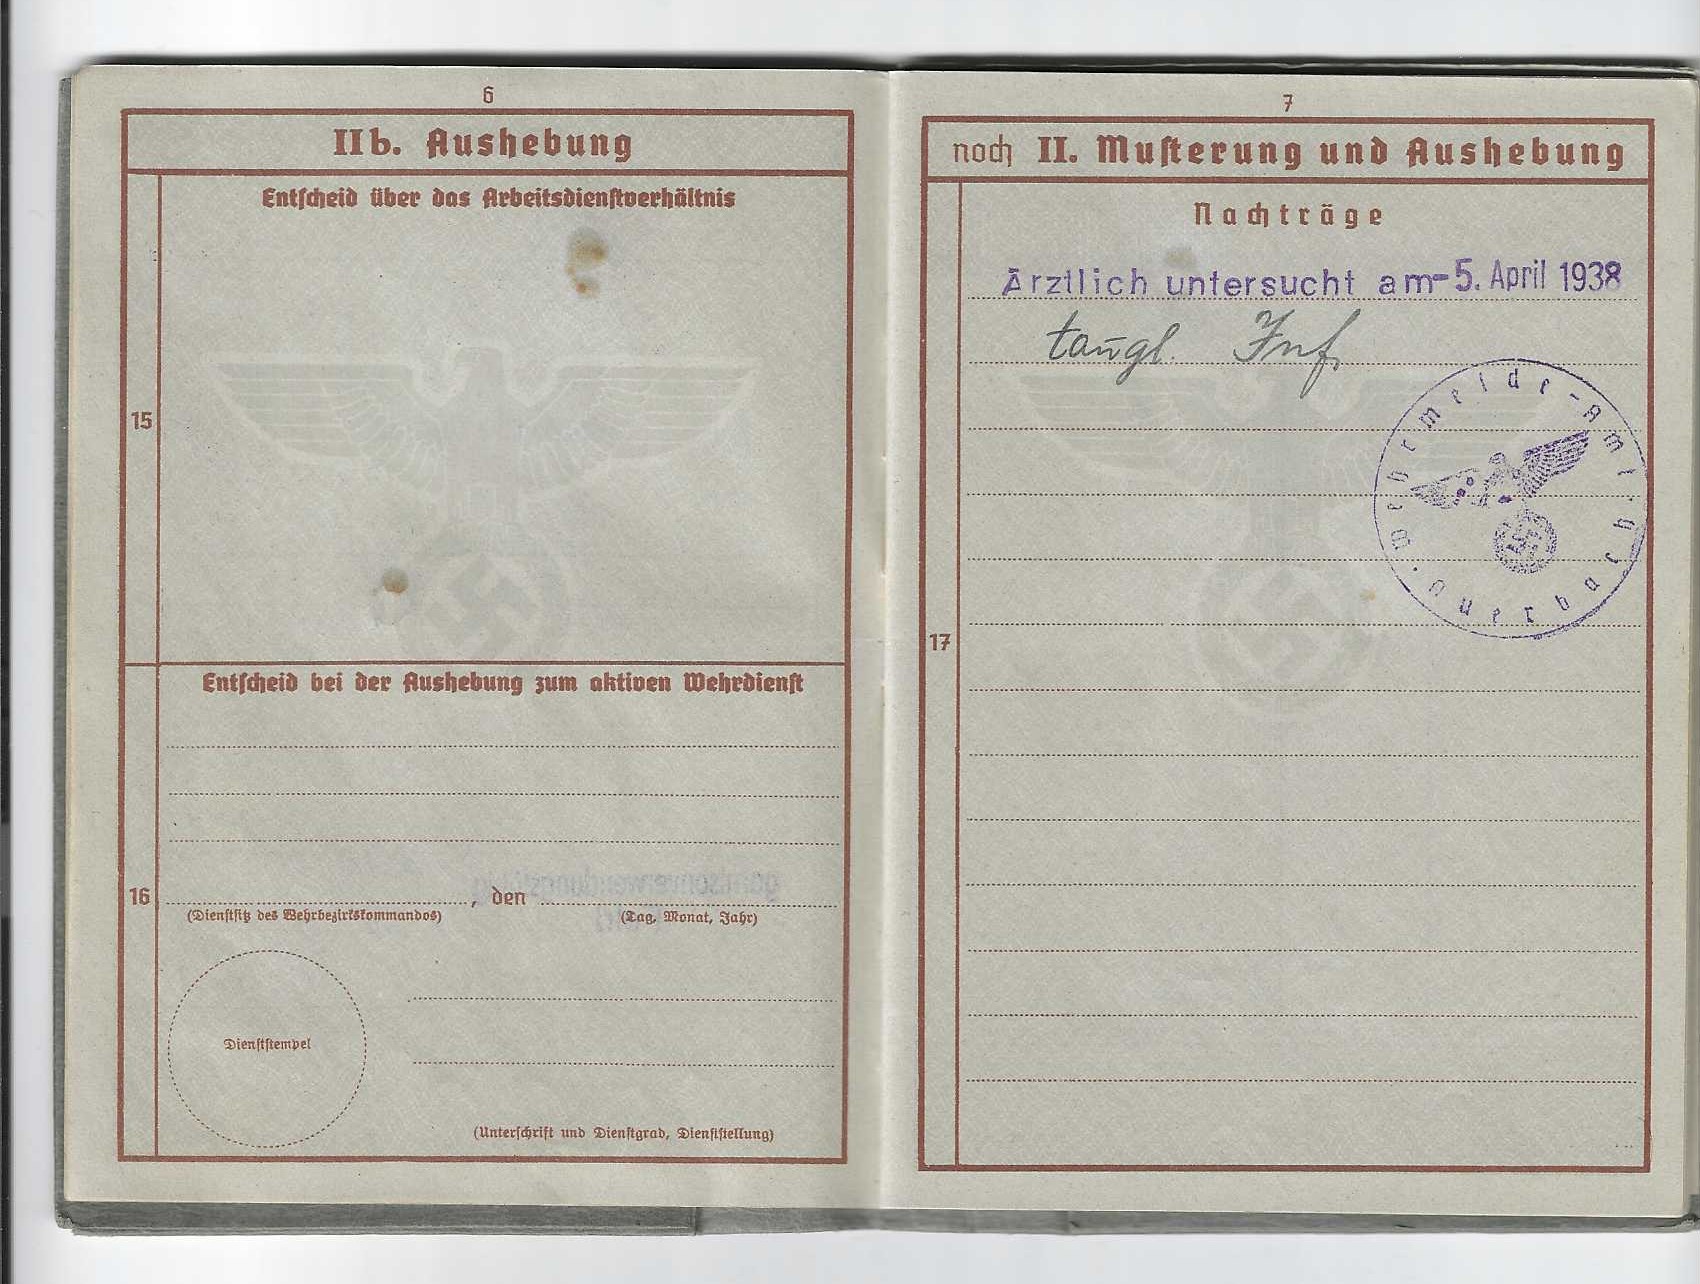 6
IIb. Aushebung
Entscheid über das Arbeitsdienstverhältnis
15
Entscheid bei der Aushebung zum aktiven Wehrdienst
16
, den
(Dienstsitz des Wehrbezirkskommandos) (Tag, Monat, Jahr)
Dienststempel
(Unterschrift und Dienstgrad, Dienststellung)
7
noch II. Musterung und Aushebung
Nachträge
Ärztlich untersucht am -5. April 1938
taugl. Inf.
Wehrmelde-Amt
17